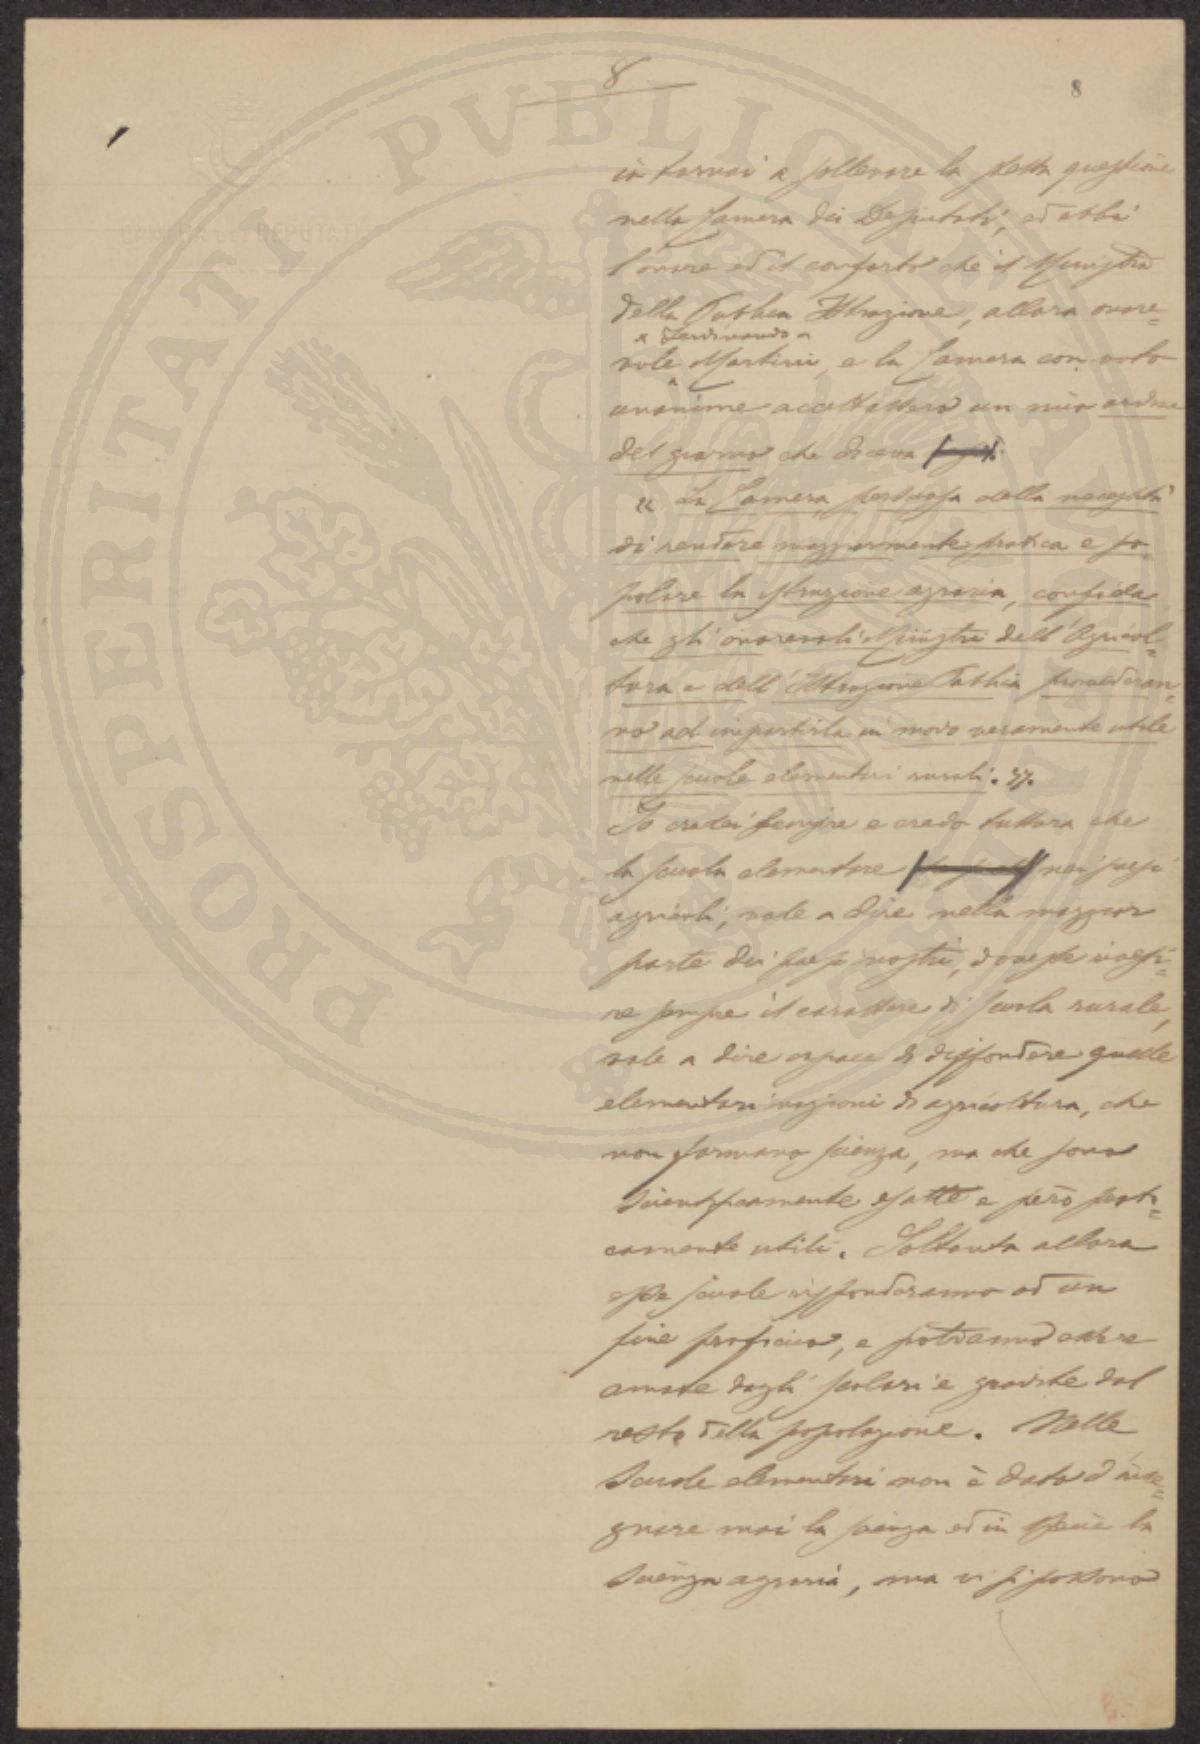 8
8
CAMERA DEI DEPUTATI
PROSPERITATI PVBLICAE
io tornai a sollevare la stessa questione
nella Camera dei Deputati, ed ebbi
l'onore ed il conforto che il Ministro
della Publica Istruzione, allora onore=
Ferdinando
vole Martini, e la Camera con voto
unanime accettassero un mio ordine
del giorno che diceva
« La Camera, persuasa della necessità
di rendere maggiormente pratica e po=
polare la istruzione agraria, confida
che gli onorevoli Ministri dell'Agricol=
tura e dell'Istruzione Publica provvederan=
no ad impartirla in modo veramente utile
nelle scuole elementari rurali. »
Io credei sempre e credo tuttora che
la scuola elementare nei paesi
agricoli, vale a dire nella maggior
parte dei paesi nostri, dovesse vesti=
re sempre il carattere di scuola rurale,
vale a dire capace di diffondere quelle
elementari nozioni di agricoltura, che
non formano scienza, ma che sono
scientificamente esatte e però prati=
camente utili. Soltanto allora
esse scuole risponderanno ad un
fine proficuo, e potranno essere
amate dagli scolari e gradite dal
resto della popolazione. Nelle
scuole elementari non è dato d'inse=
gnare mai la scienza ed in specie la
scienza agraria, ma vi si possono